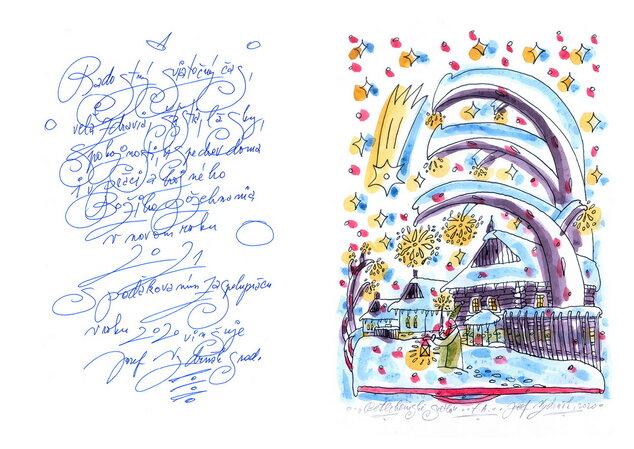 Radostný sviatočný čas,
veľa zdravia, šťastia, lásky,
spokojnosti, úspechov doma
i v práci a hojného
Božieho požehnania
v novom roku
2021
S poďakovaním za spoluprácu
v roku 2020 vinšuje
Jozef grad.
Jozef 2020